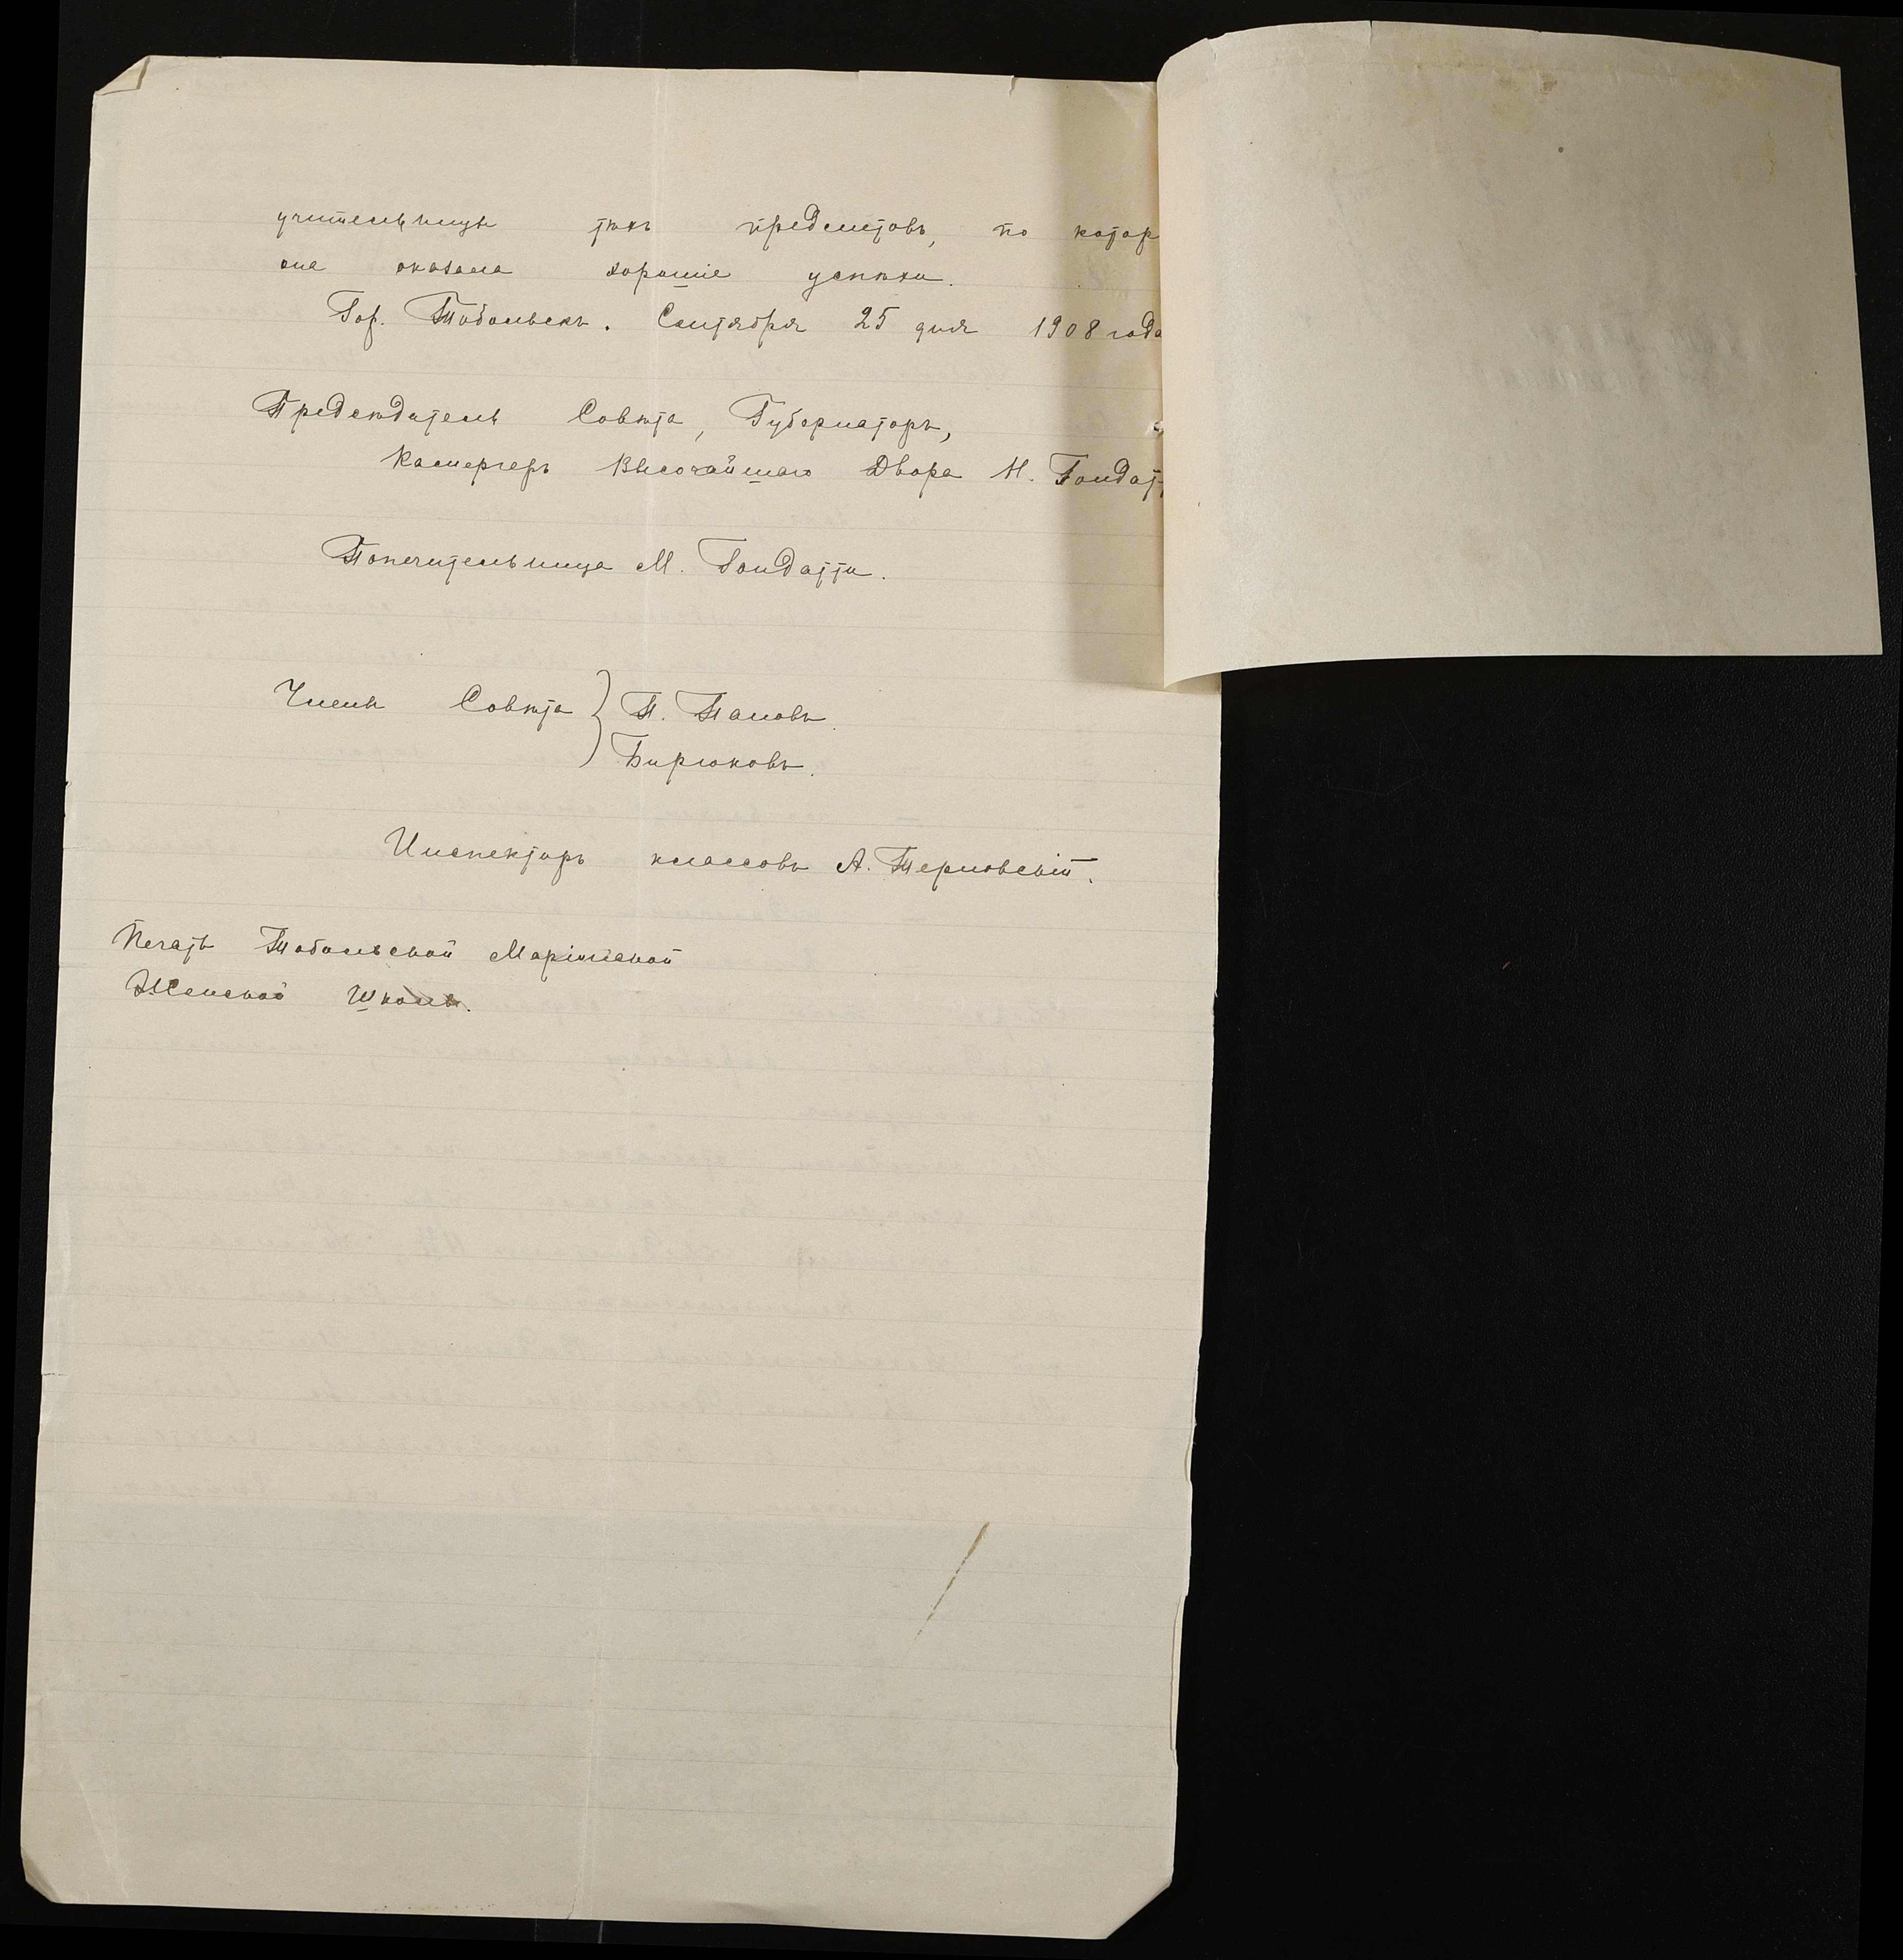 учительницы тѣхъ предметовъ, по котор
она оказала хорошіе успѣхи.
Гор. Тобольскъ. Сентября 25 дня 1908 года
Предсѣдатель Совѣта, Губернаторъ,
Камергеръ Высочайшаго Двора Н. Гондат
Попечительница М. Гондатти.
Члены Совѣта } П. Пановъ.
Бирюковъ.
Инспекторъ классовъ А. Терновскій.
Печать Тобольской Маріинской
Женской Школы.